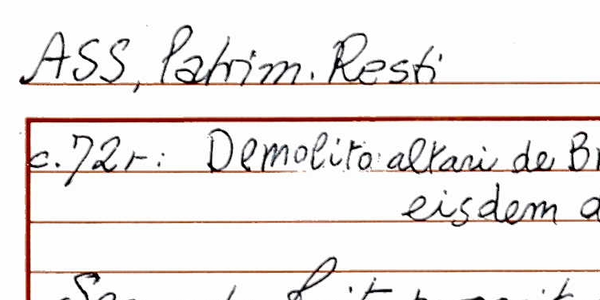 ASS, Patrim. Resti
c. 72r: Demolito altari de Br
eisdem a